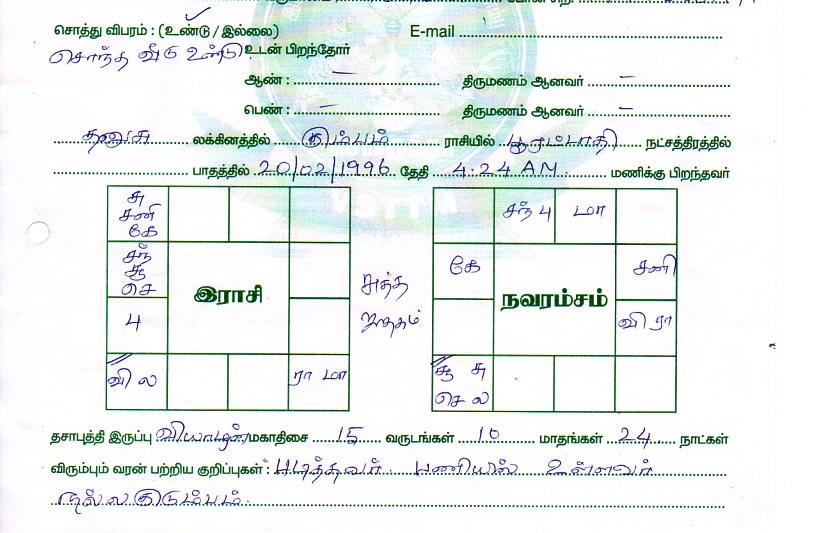 சொத்து விபரம் : (உண்டு / இல்லை) E-mail
சொந்த வீடு உண்டு. உடன் பிறந்தோர்
ஆண் : – திருமணம் ஆனவர் –
பெண் : – திருமணம் ஆனவர் –
தனுசு லக்கினத்தில் கும்பம் ராசியில் பூரட்டாதி நட்சத்திரத்தில்
பாதத்தில் 20/02/1996 தேதி 4.24 AM. மணிக்கு பிறந்தவர்
சு சனி கே
சந் சூ செ
4
வி ல
ரா மா
இராசி
சுத்த
ஜாதகம்
சந் பு மா
கே சனி
நவரம்சம்
வி ரா
சூ சு
செ ல
தசாபுத்தி இருப்பு வியாழன் மகாதிசை 15 வருடங்கள் 10 மாதங்கள் 24 நாட்கள்
விரும்பும் வரன் பற்றிய குறிப்புகள் : படித்தவர் பணியில் உள்ளவர்
நல்ல குடும்பம்.